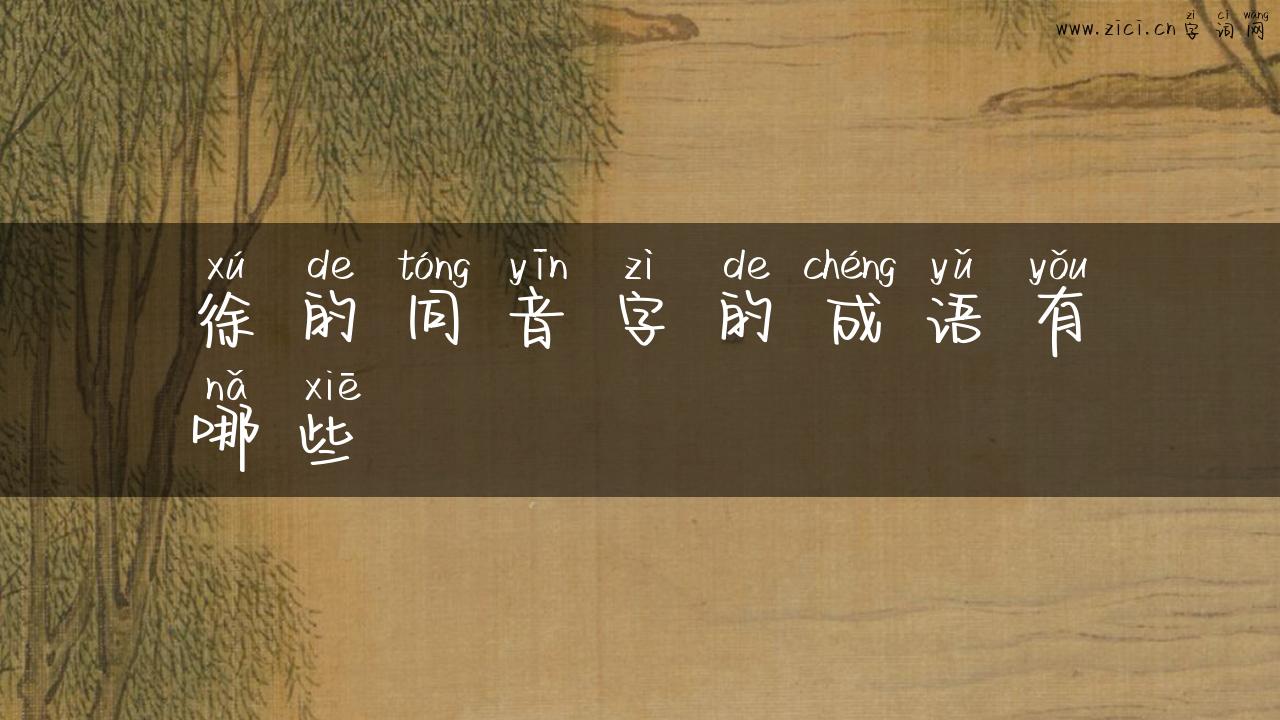 zì cí wǎng
www.zici.cn 字词网
xú de tóng yīn zì de chéng yǔ yǒu
徐的同音字的成语有
nǎ xiē
哪些